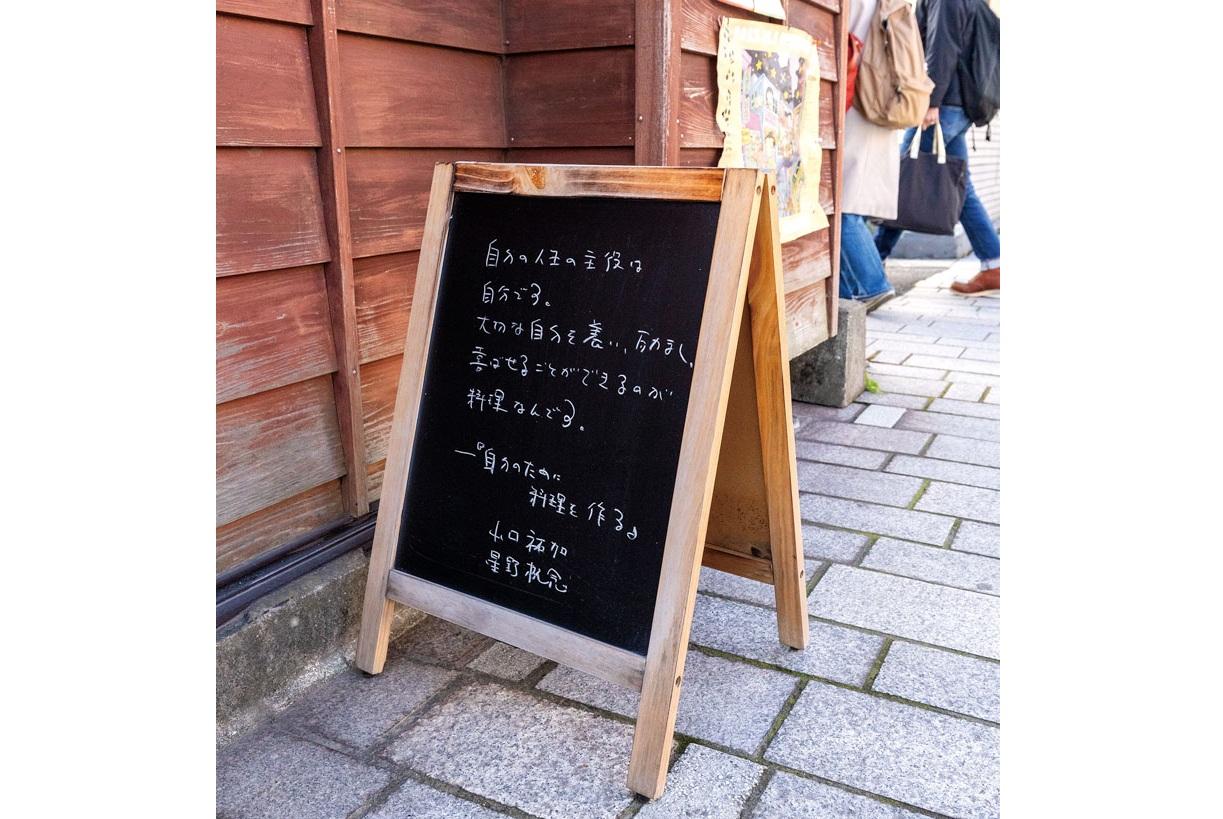 自分の人生の主役は
自分です。
大切な自分を養い、励まし、
喜ばせることができるのが
料理なんです。
―『自分のために
料理を作る』
山口祐加
星野概念